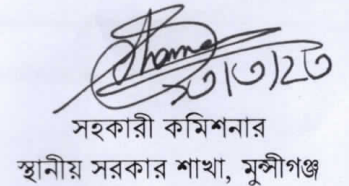 সহকারী কমিশনার
স্থানীয় সরকার শাখা, মুন্সীগঞ্জ